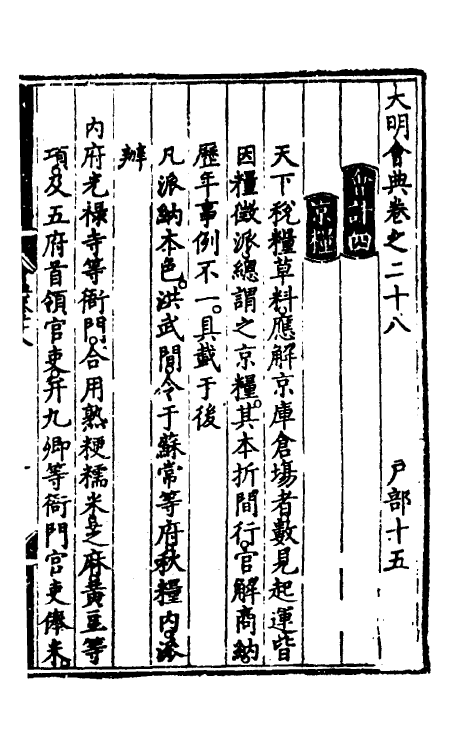 大明會典卷之二十八 戶部十五
會計四
京糧
天下稅糧草料應解京庫倉場者數見起運皆
因糧徵派總謂之京糧其本折間行官解商納
歷年事例不一具載于後
凡派納本色洪武間令于蘇常等府秋糧內派
辦
內府光祿寺等衙門合用熟粳糯米芝麻黃豆等
項及五府首領官吏并九卿等衙門官吏俸米